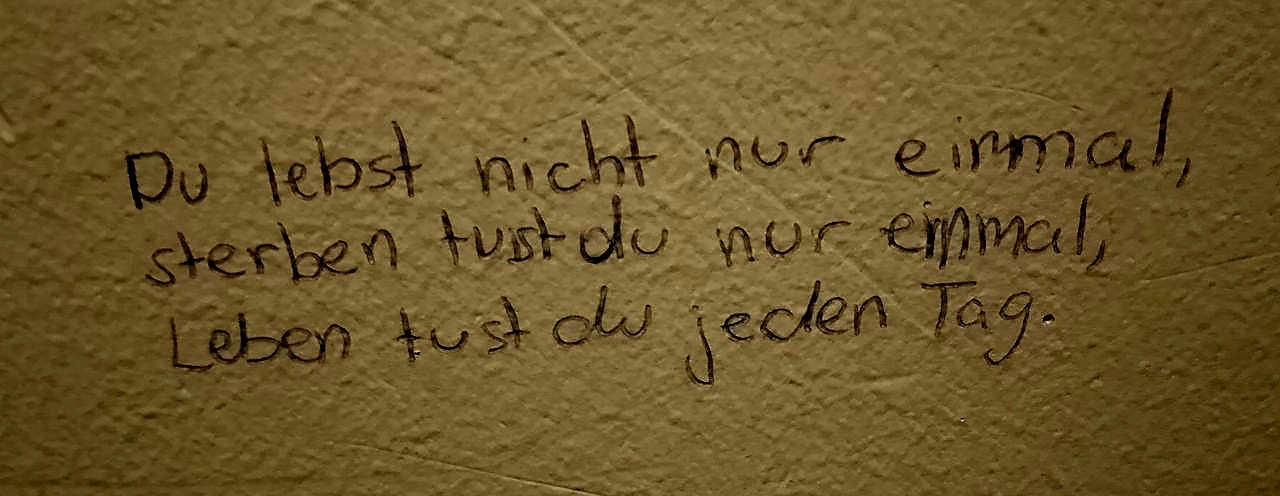 Du lebst nicht nur einmal,
sterben tust du nur einmal,
Leben tust du jeden Tag.